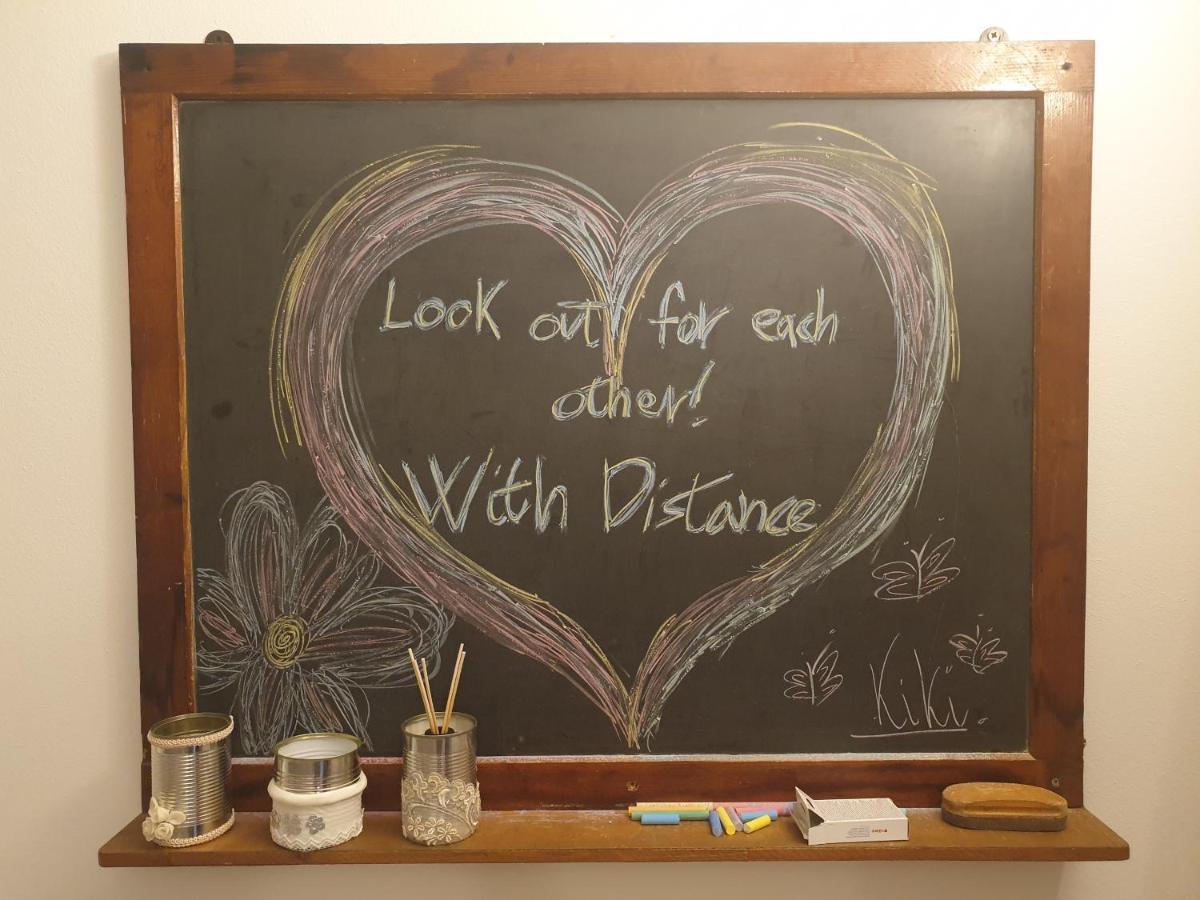 Look out for each
other!
With Distance
Kiki.